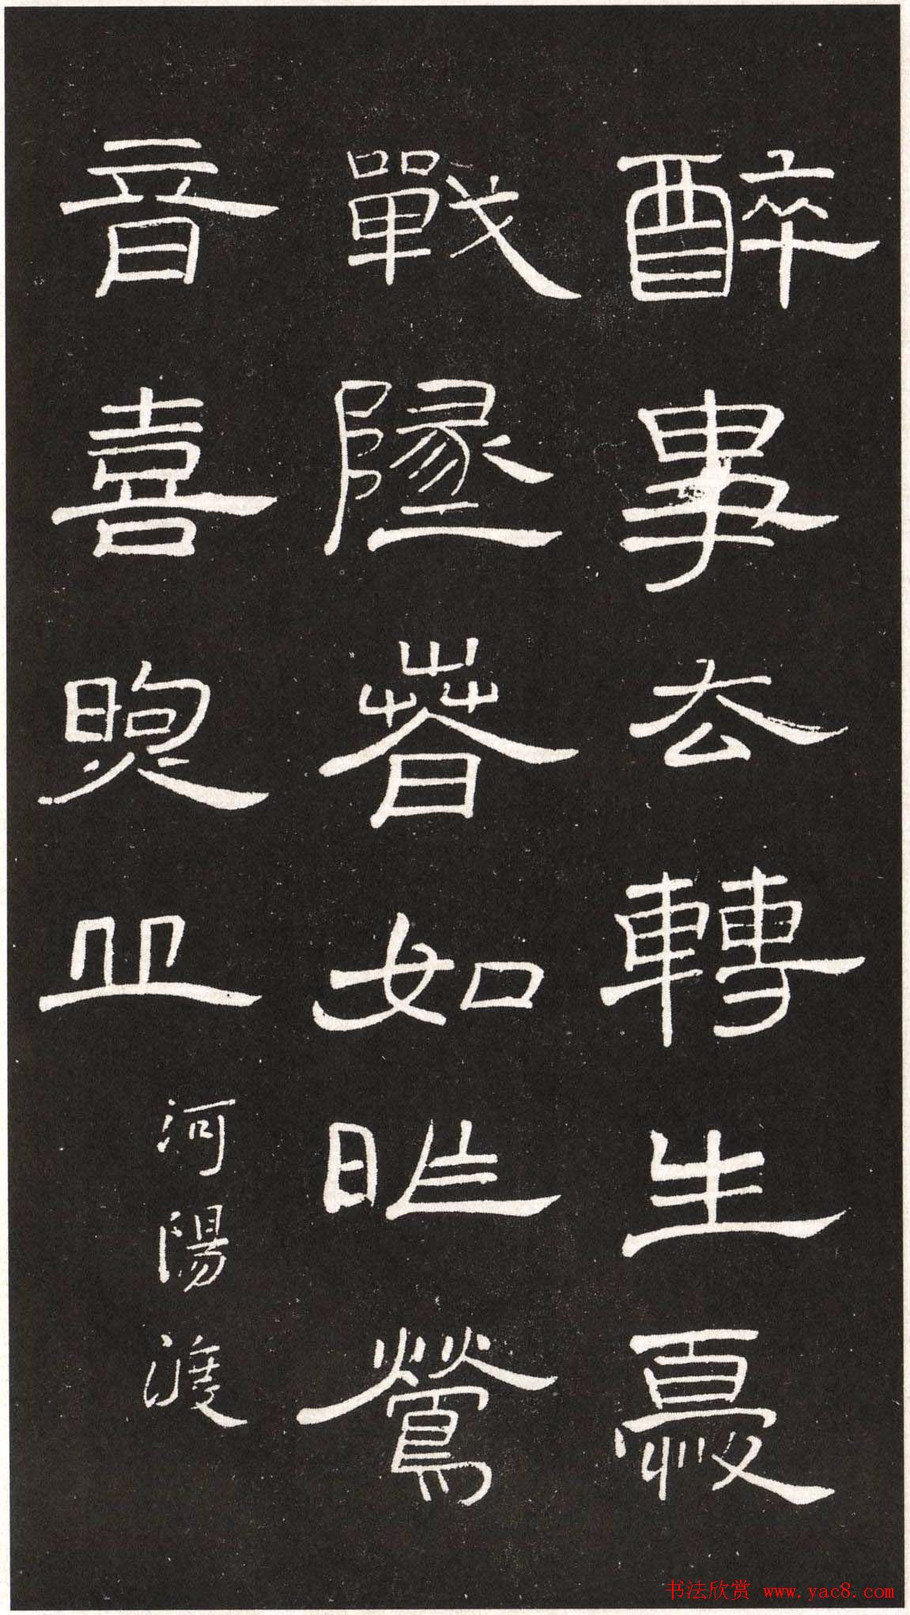 醉事去轉生憂
戰墜春如昨鶯
音喜煦丘
河陽渡
书法欣赏 www.yac8.com